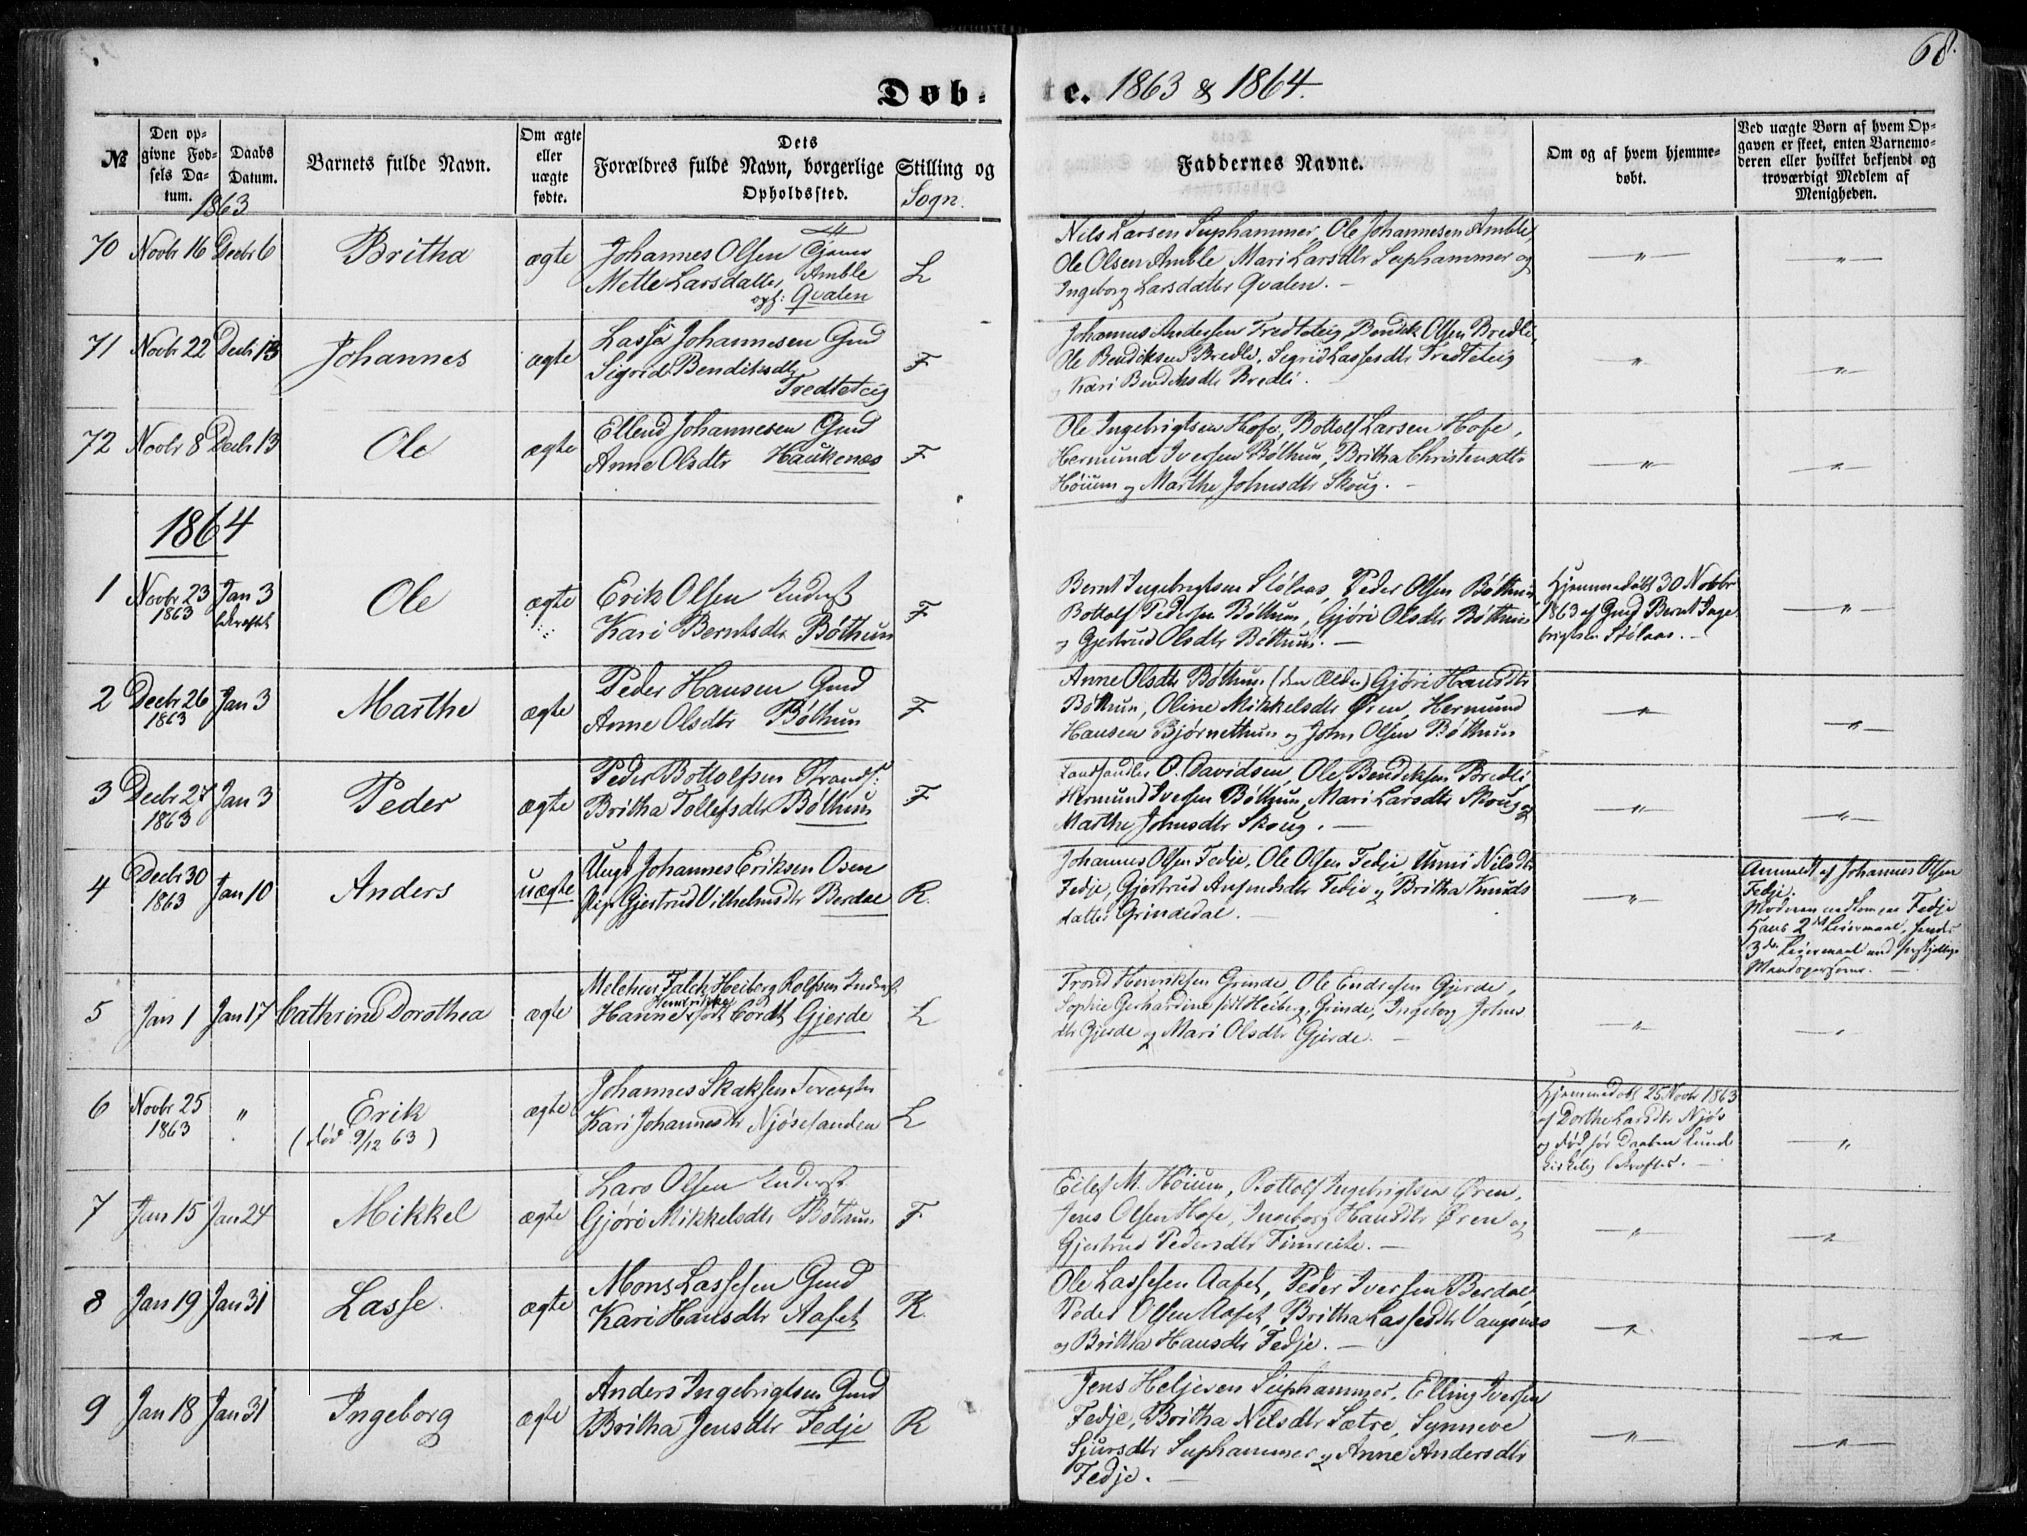 68.
Døb-
te. 1863 & 1864.
№
Den opgivne Fødsels Datum.
Daabs Datum.
Barnets fulde Navn.
Om ægte eller uægte fødte.
Dets Forældres fulde Navn, borgerlige Stilling og Opholdssted.
Sogn.
Faddernes Navne.
Om og af hvem hjemmedøbt.
Ved uægte Børn af hvem Opgaven er skeet, enten Barnemoderen eller hvilket bekjendt og troværdigt Medlem af Menigheden.
1863
70 Novbr 16 Decbr 6 Britha ægte Johannes Olsen
Mette Larsdatter Amble
opf: Qvalen L
Nils Larsen Suphammer, Ole Johannesen Amble,
Ole Olsen Amble, Mari Larsdtr Suphammer og
Ingeborg Larsdatter Qvalen. —
—"— —"—
71 Novbr 22 Decbr 13 Johannes ægte Lasse Johannesen Gmd
Sigrid Bendiksdtr
Fredteteig F
Johannes Andersen Fredteteig, Bendik Olsen Bredli,
Ole Bendiksen Bredli, Sigrid Lassesdtr Fredteteig
og Kari Bendiksdtr Bredli.
" —"—
72 Novbr 8 Decbr 13 Ole ægte Ellend Johannesen Gmd
Anne Olsdtr Haukenæs F
Ole Ingebrigtsen Hofe, Bottolf Larsen Hofe,
Hermund Iversen Bøthun, Britha Christensdtr
Høium og Marthe Johnsdtr Skoug. —
—"— —"—
1864
1 Novbr 23 1863 Jan 3 bkræftet Ole ægte Erik Olsen Inderst
Kari Berntsdtr Bøthun F
Bernt Ingebrigtsen Stølaas, Peder Olsen Bøthun,
Bottolf Pedersen Bøthun, Gjøri Olsdtr Bøthun
og Gjertrud Olsdtr Bøthun. —
Hjemmedøbt 30 Novbr
1863 af Gmd Bernt Inge-
brigtsen Stølaas. —
—"—
2 Decbr 26 1863 Jan 3 Marthe ægte Peder Hansen Gmd
Anne Olsdtr Bøthun F
Anne Olsdtr Bøthun (den Ældre) Gjøri Hansdtr
Bøthun, Oline Mikkelsdtr Øren, Hermund
Hansen Bjørnethun og John Olsen Bøthun
—"— —"—
3 Decbr 27 1863 Jan 3 Peder ægte Peder Bottolfsen Strands:
Britha Tollefsdtr Bøthun F
Landhandler O. Davidsen, Ole Bendiksen Bredli
Hermund Iversen Bøthun, Mari Larsdtr Skoug og
Marthe Johnsdtr Skoug. —
—"— —"—
4 Decbr 30 1863 Jan 10 Anders uægte Ungk Johannes Eriksen Osen
Pige Gjertrud Vilhelmsdtr Berdal R.
Johannes Olsen Fedje, Ole Olsen Fedje, Unni Nilsdtr
Fedje, Gjertrud Ansendsdtr Fedje og Britha Knuds
datter Grindedal. —
—"—
Anmeldt af Johannes Olsen
Fedje.
Moderen Fedje
Hans 2det Leiermaal, hendes
3die Leiermaal med forskjellige
Mandspersoner. —
5 Jan 1 Jan 17 Cathrine Dorothea ægte Melchen Falck Heiberg Rolfsen Inderst
Hanne Henrikke født Cordt Gjerde L
Trond Henriksen Grinde, Ole Endresen Gjerde,
Sophie Gerhardine født Heiberg, Grinde, Ingeborg Johns
dtr Gjerde og Mari Olsdtr Gjerde. —
—"— —"—
6 Novbr 25 1863 " Erik
(død 9/12 63) ægte Johannes Skaksen
Kari Johannesdtr Njøsesanden L
Hjemmedøbt 25 Novbr 1863
af Dorthe Larsdtr Njøs
og død før Daaben kunde
kirkelig bekræftes. —
"
7 Jan 15 Jan 24 Mikkel ægte Lars Olsen Inderst
Gjøri Mikkelsdtr Bøthun F
Eilef M. Høium, Bottolf Ingebrigtsen Øren,
Jens Olsen Hofe, Ingeborg Hansdtr Øren og
Gjertrud Pedersdtr Fimreite. —
—"— —"—
8 Jan 19 Jan 31 Lasse ægte Mons Lassesen Gmd
Kari Hansdtr Aafet R.
Ole Lassesen Aafet, Peder Iversen Berdal,
Peder Olsen Aafet, Britha Lassesdtr Vangsnæs
og Britha Hansdtr Fedje. —
—"— —"—
9 Jan 18 Jan 31 Ingeborg ægte Anders Ingebrigtsen Gmd
Britha Jensdtr Fedje R
Jens Heljesen Suphammer, Elling Iversen
Fedje, Britha Nilsdtr Sætre, Synneve
Sjursdtr Suphammer og Anne Andersdtr
Fedje. —
—"— —"—